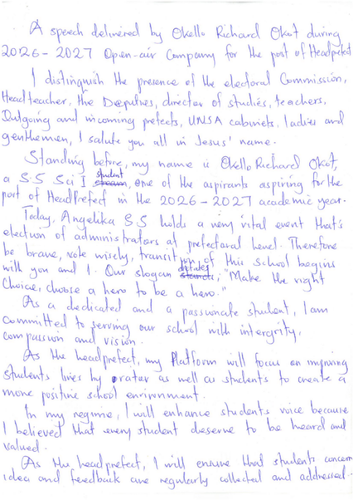 A speech delivered by Okello Richard Okot during
2026-2027 Open-air Company for the post of Headprefect
I distinguish the presence of the electoral Commission,
Headteacher, the Deputies, director of studies, teachers,
Outgoing and incoming prefects, UNSA cabinets. ladies and
genthemen, I salute you all in Jesus' name.
Standing before, my name is Okello Richard Okot,
a S.5 Sci I student, one of the aspirants aspiring for the
post of HeadPrefect in the 2026-2027 academic year.
Today, Angelika S.S holds a very vital event that's
election of administrators at prefectoral level. Therefore
be brave, vote wisely, transition of this School begins
with you and I. Our slogan "Make the right
Choice, choose a hero to be a hero."
As a dedicated and a passionate student, I am
committed to serving our school with intergrity,
compassion and vision.
As the headprefect, my Platform will focus on
students lives by as well as students to create a
more positive school environment.
In my regime, I will enhance students voice because
I believed that every student deserve to be heard and
valued.
As the headprefect, I will ensure that students concern
idea and feedback are regularly collected and addressed.